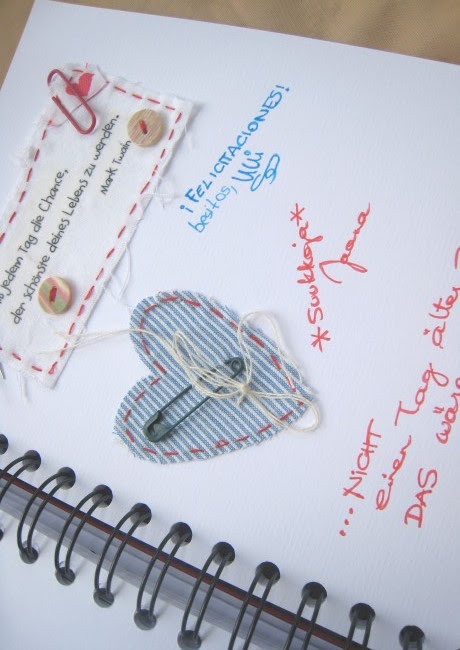 jedem Tag die Chance,
der schönste deines Lebens zu werden.
Mark Twain
¡FELICITACIONES!
besitos, Uli
*Suukkoja*
Jaana
...NICHT
einen Tag älter
DAS wäre